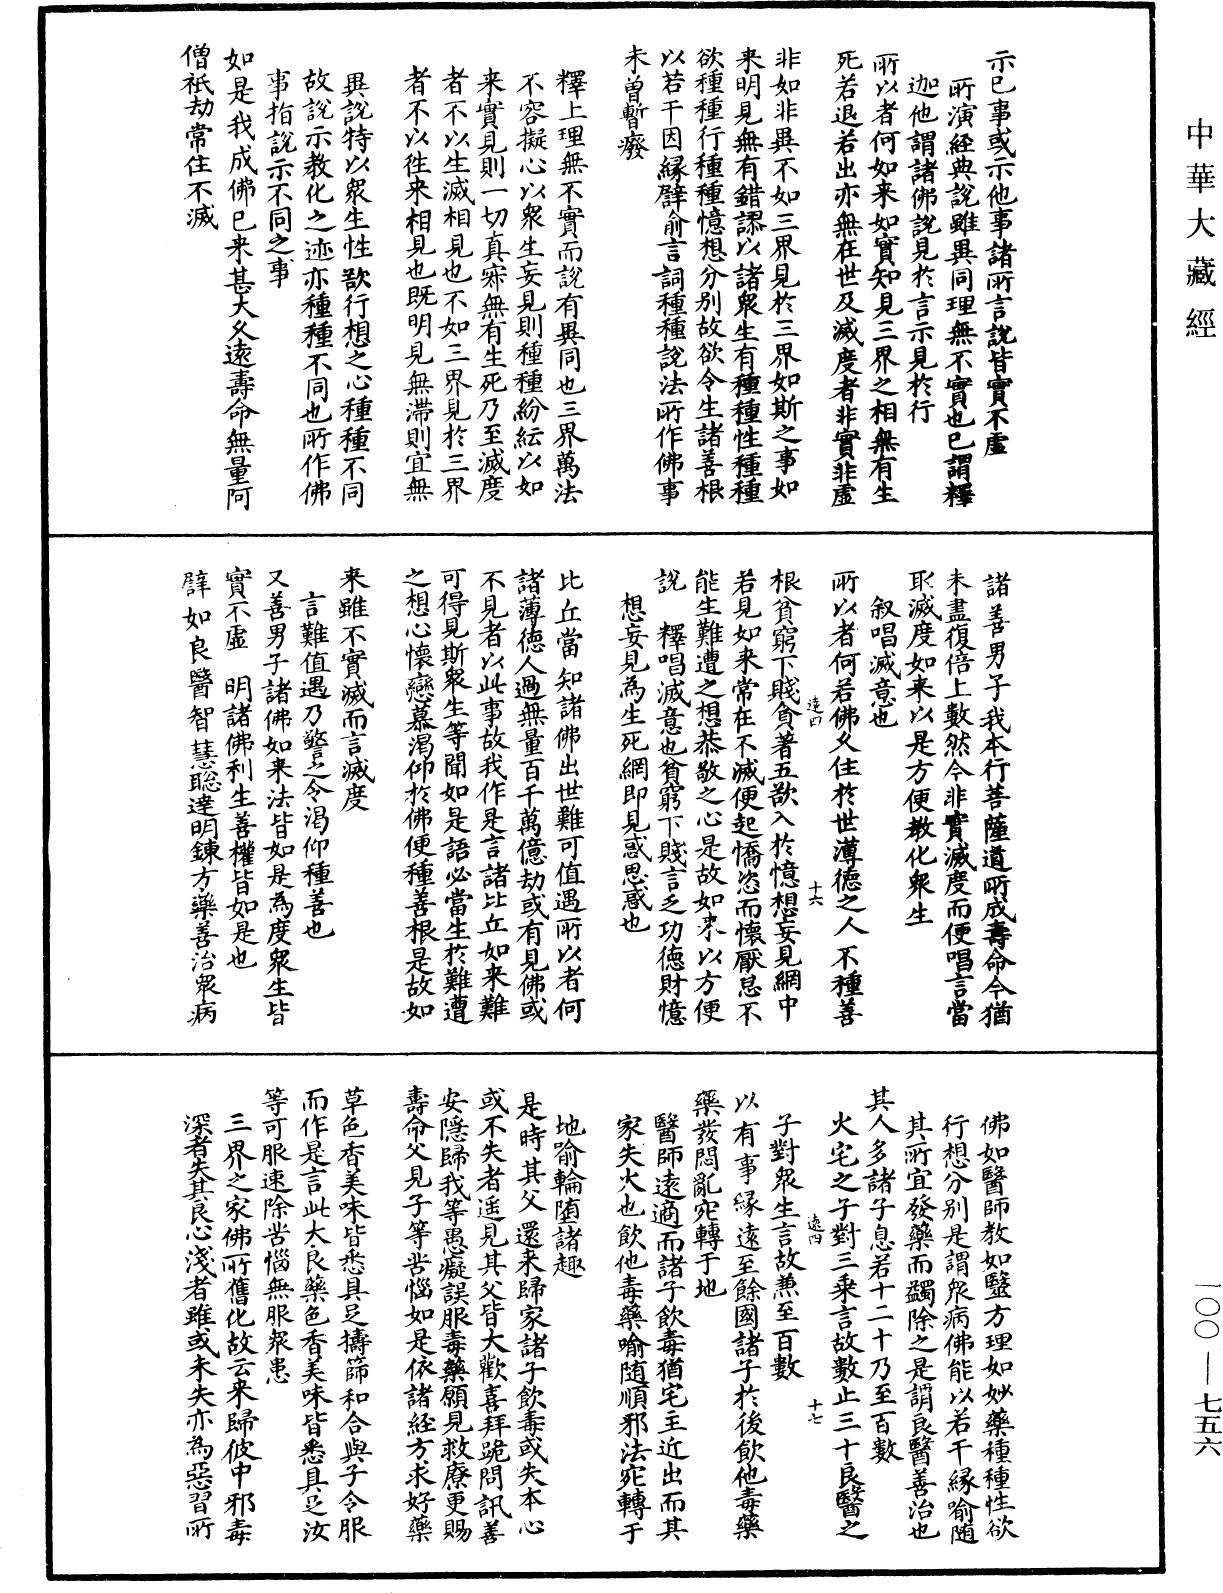 中華大藏經
示已事或示他事諸所言說皆實不虛
所演經典說雖異同理無不實也已謂釋
迦他謂諸佛說見於言示見於行
所以者何如来如實知見三界之相無有生
死若退若出亦無在世及滅度者非實非虛
非如非異不如三界見於三界如斯之事如
来明見無有錯謬以諸眾生有種種性種種
欲種種行種種憶想分別故欲令生諸善根
以若干因縁譬喻言詞種種說法所作佛事
未曾暫廢
釋上理無不實而說有異同也三界萬法
不容擬心以眾生妄見則種種紛紜以如
来實見則一切真寂無有生死乃至滅度
者不以生滅相見也不如三界見於三界
者不以往来相見也既明見無滯則宜無
異說特以眾生性欲行想之心種種不同
故說示教化之迹亦種種不同也所作佛
事指說示不同之事
如是我成佛已来甚大久遠壽命無量阿
僧祇劫常住不滅
諸善男子我本行菩薩道所成壽命今猶
未盡復倍上數然今非實滅度而便唱言當
取滅度如来以是方便教化眾生
叙唱滅意也
所以者何若佛久住於世薄德之人不種善
根貧窮下賤貪著五欲入於憶想妄見網中
若見如来常在不滅便起憍恣而懷厭怠不
能生難遭之想恭敬之心是故如来以方便
說　釋唱滅意也貧窮下賤言乏功德財憶
想妄見為生死網即見惑思惑也
比丘當知諸佛出世難可值遇所以者何
諸薄德人過無量百千萬億劫或有見佛或
不見者以此事故我作是言諸比丘如来難
可得見斯眾生等聞如是語必當生於難遭
之想心懷戀慕渴仰於佛便種善根是故如
来雖不實滅而言滅度
言難值遇乃警之令渴仰種善也
又善男子諸佛如来法皆如是為度眾生皆
實不虛　明諸佛利生善權皆如是也
譬如良醫智慧聦達明鍊方藥善治眾病
遠四
十六
佛如醫師教如毉方理如妙藥種種性欲
行想分別是謂眾病佛能以若干縁喻随
其所宜發藥而蠲除之是謂良醫善治也
其人多諸子息若十二十乃至百數
火宅之子對三乘言故數止三十良醫之
子對眾生言故兼至百數
以有事縁遠至餘國諸子於後飲他毒藥
藥發悶亂宛轉于地
醫師遠適而諸子飲毒猶宅主近出而其
家失火也飲他毒藥喻随順邪法宛轉于
地喻輪堕諸趣
是時其父還来歸家諸子飲毒或失本心
或不失者遥見其父皆大歡喜拜跪問訊善
安隱歸我等愚癡誤服毒藥願見救療更賜
壽命父見子等苦惱如是依諸經方求好藥
草色香美味皆悉具足擣篩和合與子令服
而作是言此大良藥色香美味皆悉具足汝
等可服速除苦惱無服眾患
三界之家佛所舊化故云来歸彼中邪毒
深者失其良心淺者雖或未失亦為惡習所
遠四
十七
一〇〇—七五六